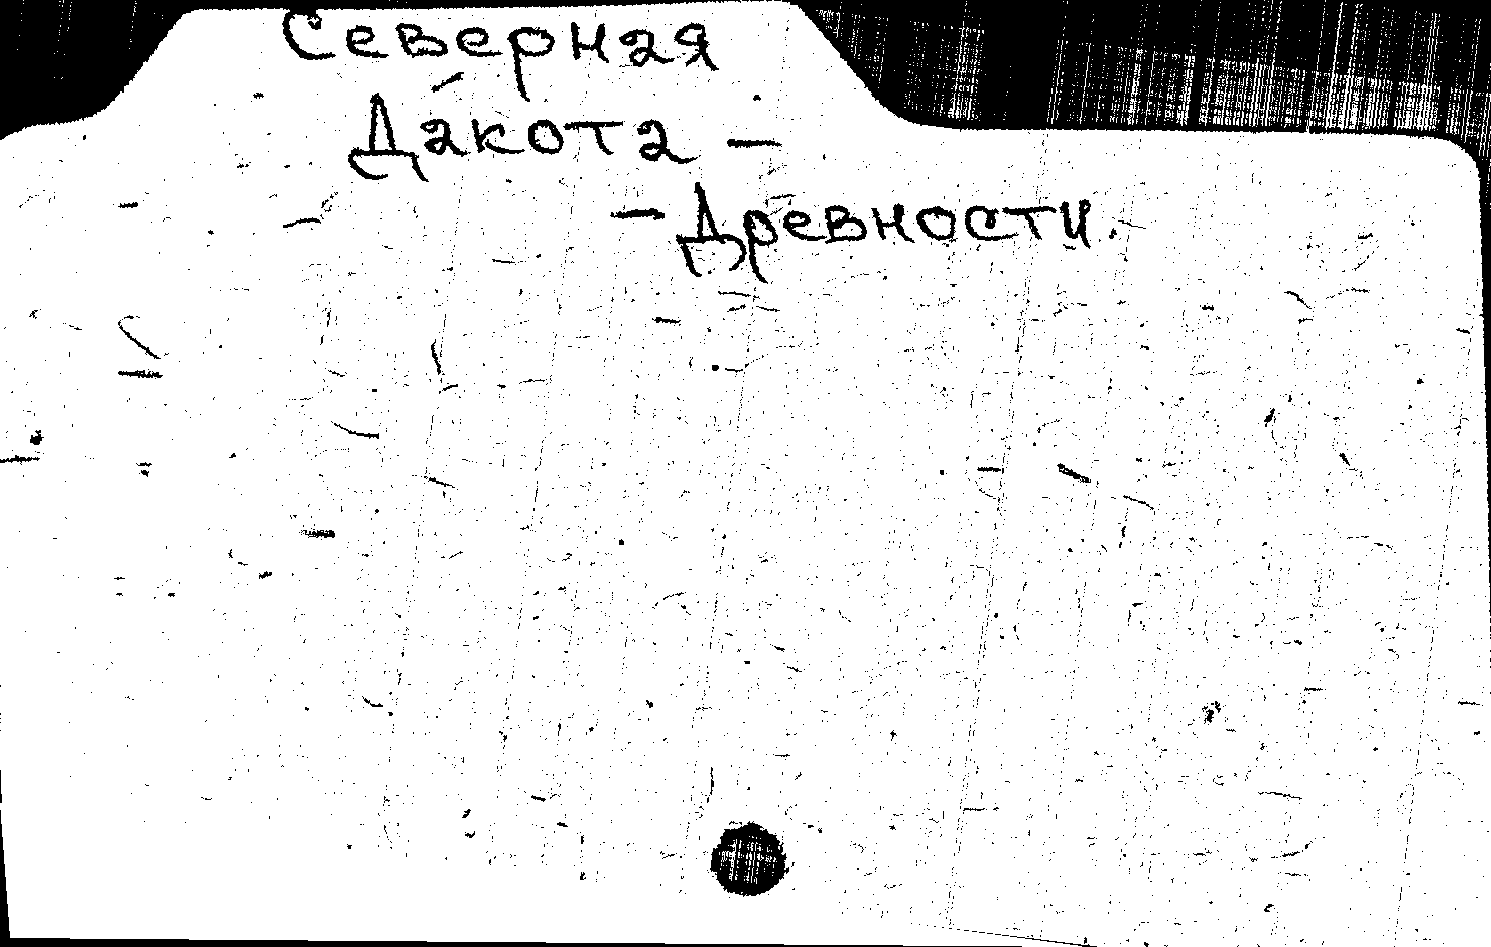 Северная
Дако́та –
– Древности.